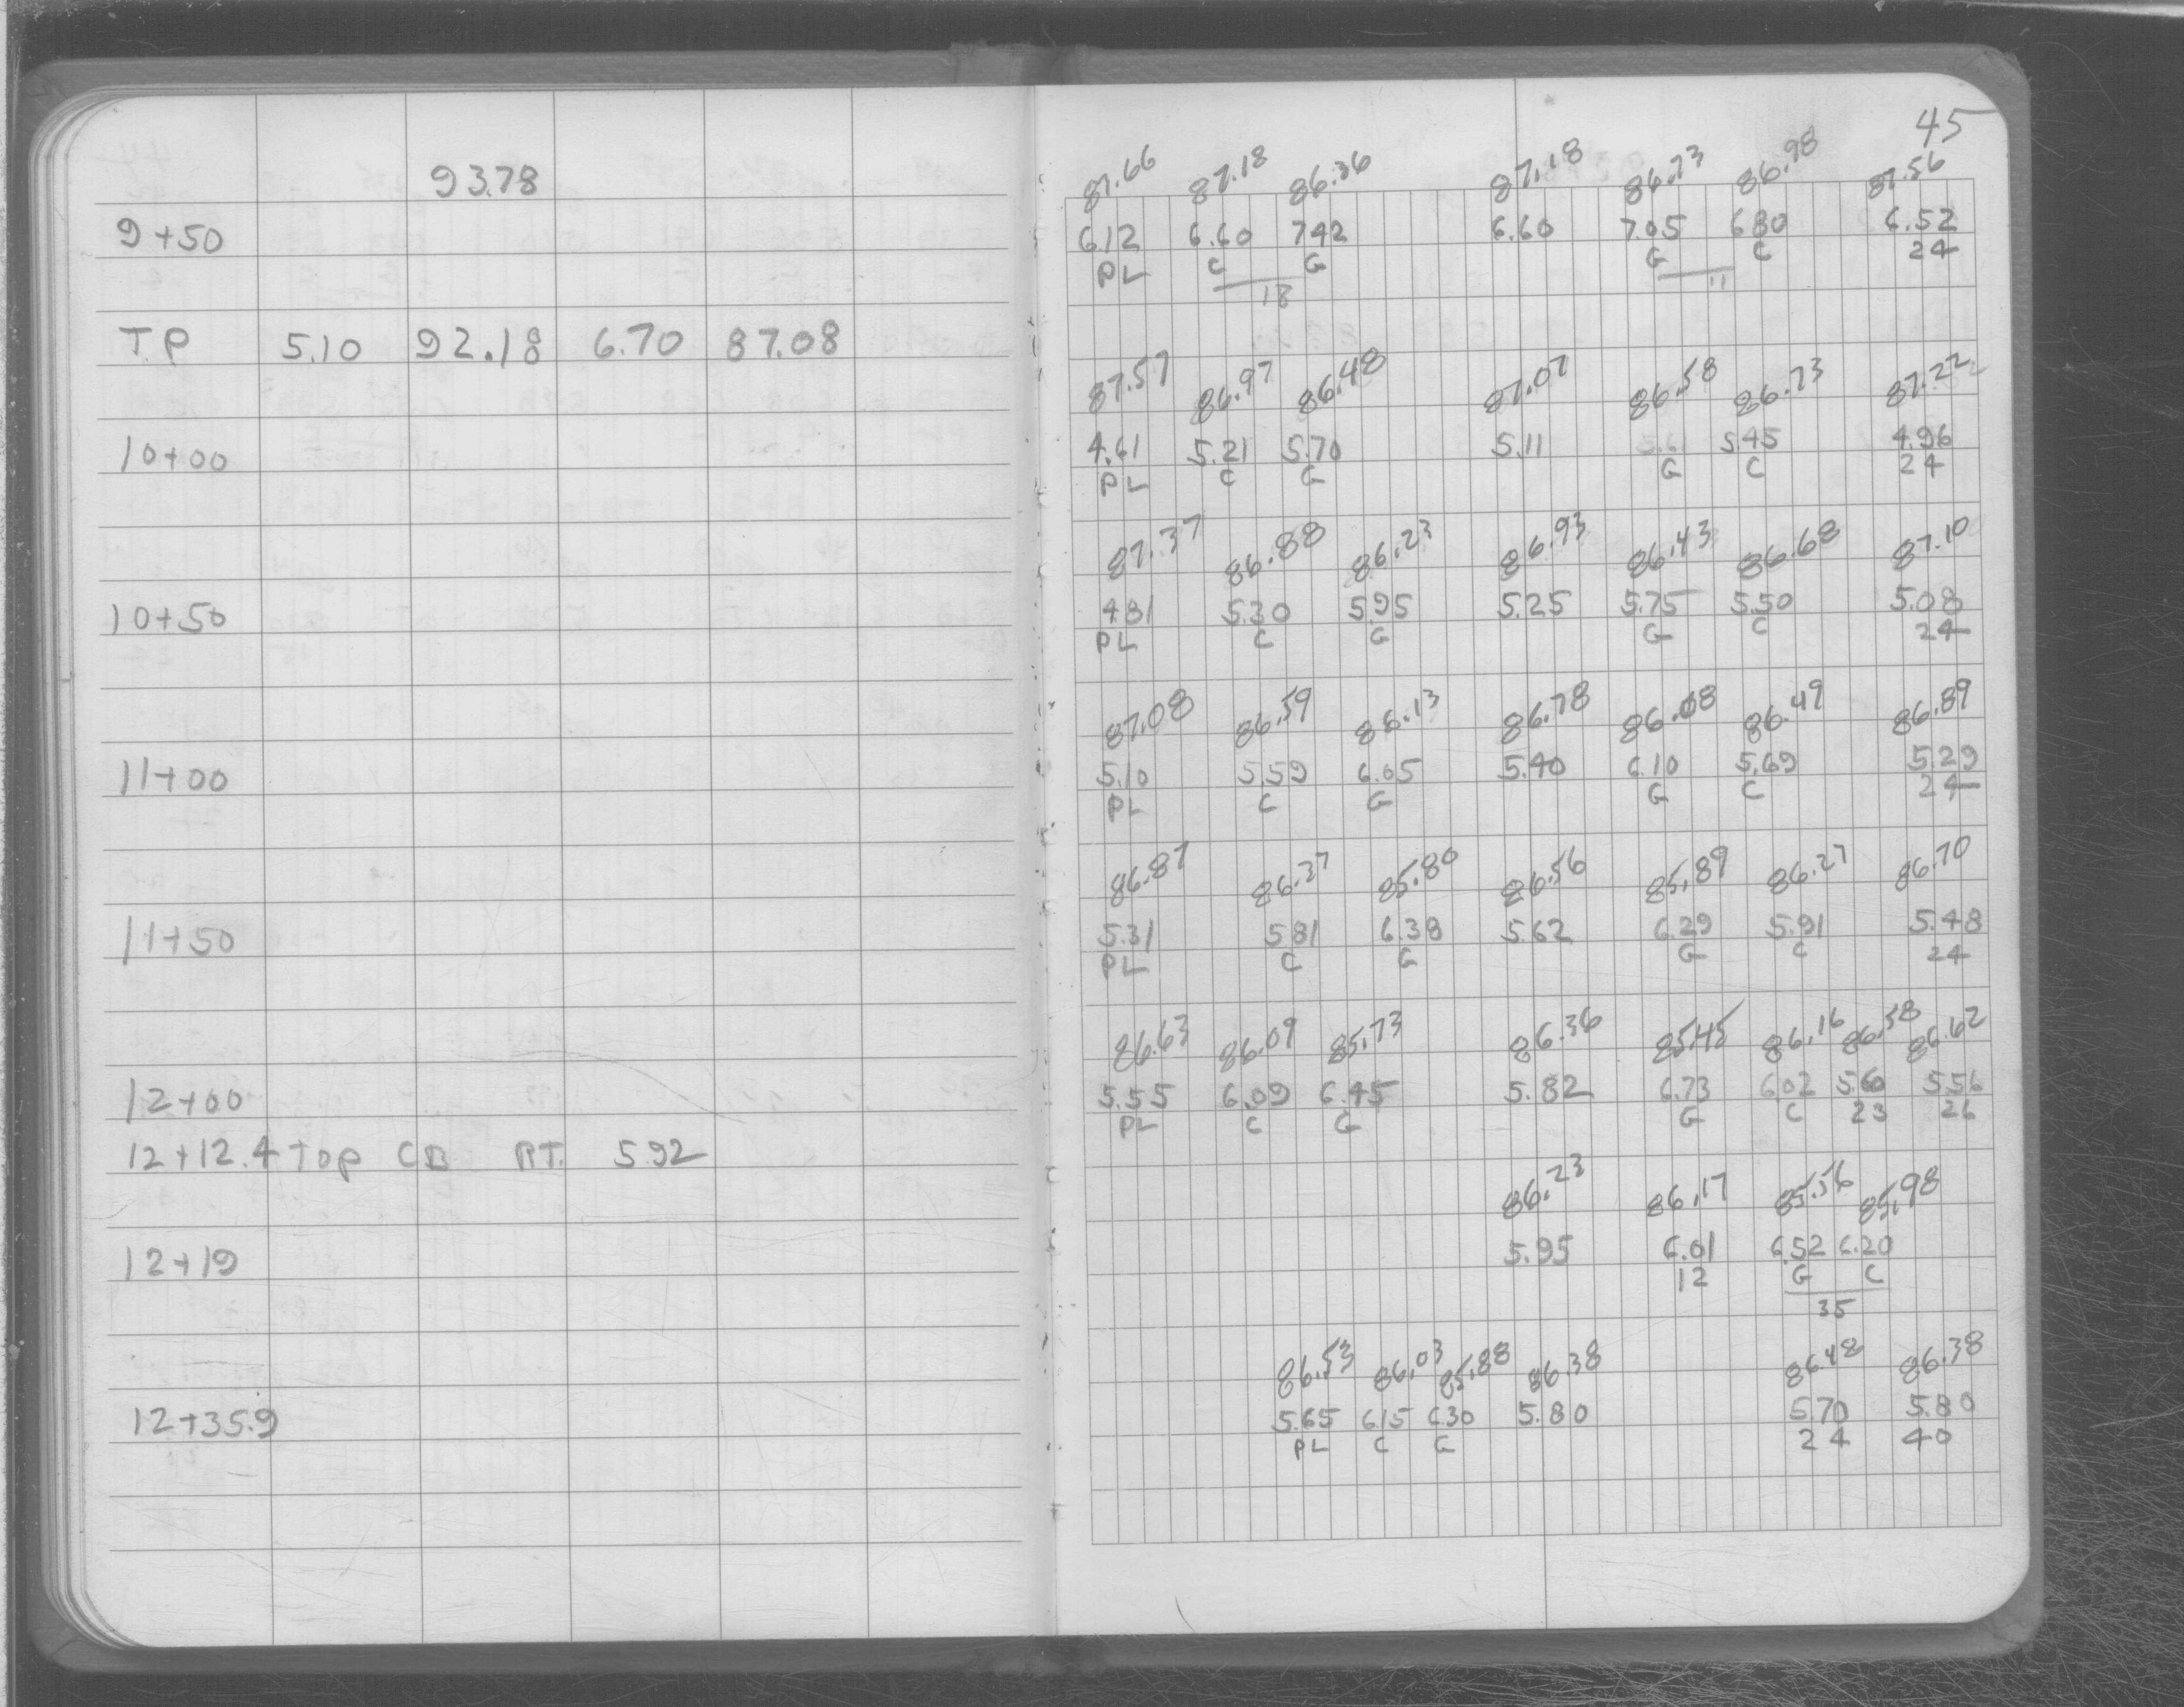 45
93.78
87.66 87.18 86.36 87.18 86.73 86.98 87.56
9+50 6.12 6.60 7.42 6.60 7.05 6.80 6.52
PL C G G C 24
18 11
T.P 5.10 92.18 6.70 87.08
87.57 86.97 86.48 87.07 86.58 86.73 87.22
10+00 4.61 5.21 5.70 5.11 5.45 4.96
PL C G G C 24
87.37 86.88 86.23 86.93 86.43 86.68 87.10
10+50 4.81 5.30 5.95 5.25 5.75 5.50 5.08
PL C G G C 24
87.08 86.59 86.13 86.78 86.08 86.49 86.89
11+00 5.10 5.59 6.05 5.40 6.10 5.69 5.29
PL C G G C 24
86.87 86.37 85.80 86.56 85.89 86.27 86.70
11+50 5.31 5.81 6.38 5.62 6.29 5.91 5.48
PL C G G C 24
86.63 86.09 85.73 86.36 85.45 86.16 86.58 86.62
12+00 5.55 6.09 6.45 5.82 6.73 6.02 5.60 5.56
PL C G G C 23 26
12+12.4 Top CB RT. 5.92
86.23 86.17 85.56 85.98
12+19 5.95 6.01 6.52 6.20
12 G C
35
86.53 86.03 85.88 86.38 86.48 86.38
12+35.9 5.65 6.15 6.30 5.80 5.70 5.80
PL C G 24 40